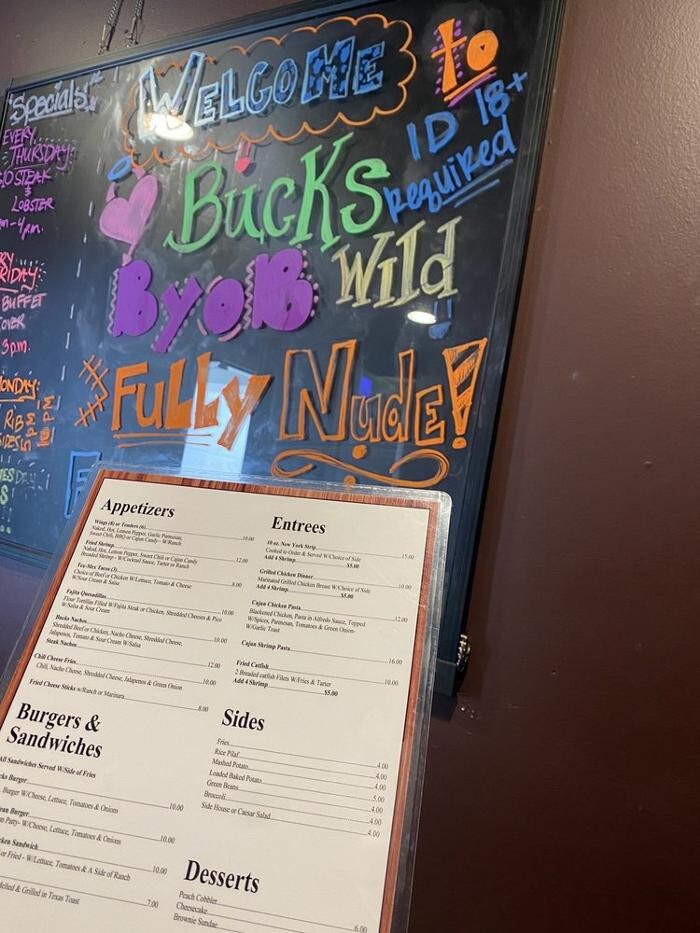 "Specials"
EVERY
THURSDAY:
STEAK
&
LOBSTER
-4pm.
BUFFET
3p.m.
RIB
WELCOME to
ID 18+
Required
BUCKS
Wild
ByOB
#FULLy NudE!
Appetizers
Wings (8) or Tenders (6) 10.00
Naked, Hot, Lemon Pepper, Garlic Parmesan,
Sweet Chili, BBQ or Cajun Candy - W/Ranch
Fried Shrimp 12.00
Naked, Hot, Lemon Pepper, Sweet Chili or Cajun Candy
Breaded Shrimp - W/Cocktail Sauce, Tarter or Ranch
Tex-Mex Tacos (3) 8.00
Choice of Beef or Chicken W/Lettuce, Tomato & Cheese
W/Sour Cream & Salsa
Fajita Quesadillas 10.00
Flour Tortillas Filled W/Fajita Steak or Chicken, Shredded Cheeses & Pico
W/Salsa & Sour Cream
Bucks Nachos 10.00
Shredded Beef or Chicken, Nacho Cheese, Shredded Cheese,
Jalapenos, Tomato & Sour Cream W/Salsa
Steak Nachos 12.00
Chili Cheese Fries 10.00
Chili, Nacho Cheese, Shredded Cheese, Jalapenos & Green Onion
Fried Cheese Sticks w/Ranch or Marinara 8.00
Burgers &
Sandwiches
All Sandwiches Served W/Side of Fries
Burger 10.00
Burger W/Cheese, Lettuce, Tomatoes & Onions
Burger 10.00
Patty- W/Cheese, Lettuce, Tomatoes & Onions
Sandwich 10.00
or Fried - W/Lettuce, Tomatoes & A Side of Ranch
Melted & Grilled in Texas Toast 7.00
Entrees
10 oz. New York Strip 15.00
Cooked to Order & Served W/Choice of Side
Add 4 Shrimp $5.00
Grilled Chicken Dinner 10.00
Marinated Grilled Chicken Breast W/Choice of Side
Add 4 Shrimp $5.00
Cajun Chicken Pasta 12.00
Blackened Chicken, Pasta in Alfredo Sauce, Topped
W/Spices, Parmesan, Tomatoes & Green Onion-
W/Garlic Toast
Cajun Shrimp Pasta 16.00
Fried Catfish 10.00
2 Breaded catfish Filets W/Fries & Tarter
Add 4 Shrimp $5.00
Sides
Fries 4.00
Rice Pilaf 4.00
Mashed Potato 4.00
Loaded Baked Potato 5.00
Green Beans 4.00
Broccoli 4.00
Side House or Caesar Salad 4.00
Desserts
Peach Cobbler 6.00
Cheesecake
Brownie Sundae